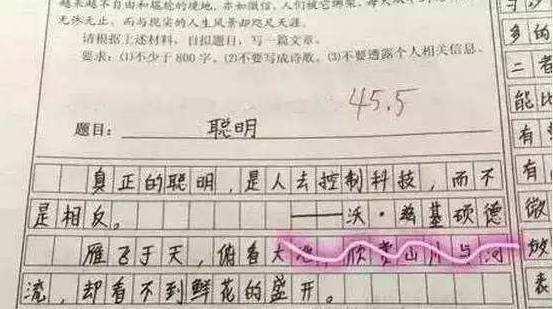 越来越不自由和尴尬的境地,亦如微信,人们被它绑架,每天
无休无止,而与现实的人生风景却咫尺天涯。
请根据上述材料,自拟题目,写一篇文章。
要求:(1)不少于800字。(2)不要写成诗歌。(3)不要透露个人相关信息。
45.5
题目: 聪明
真正的聪明,是人去控制科技,而不
是相反。 ——沃·兹基硕德
雁飞于天,俯看大地,欣赏山川与河
流,却看不到鲜花的盛开。
多的
二者
能比
有
有